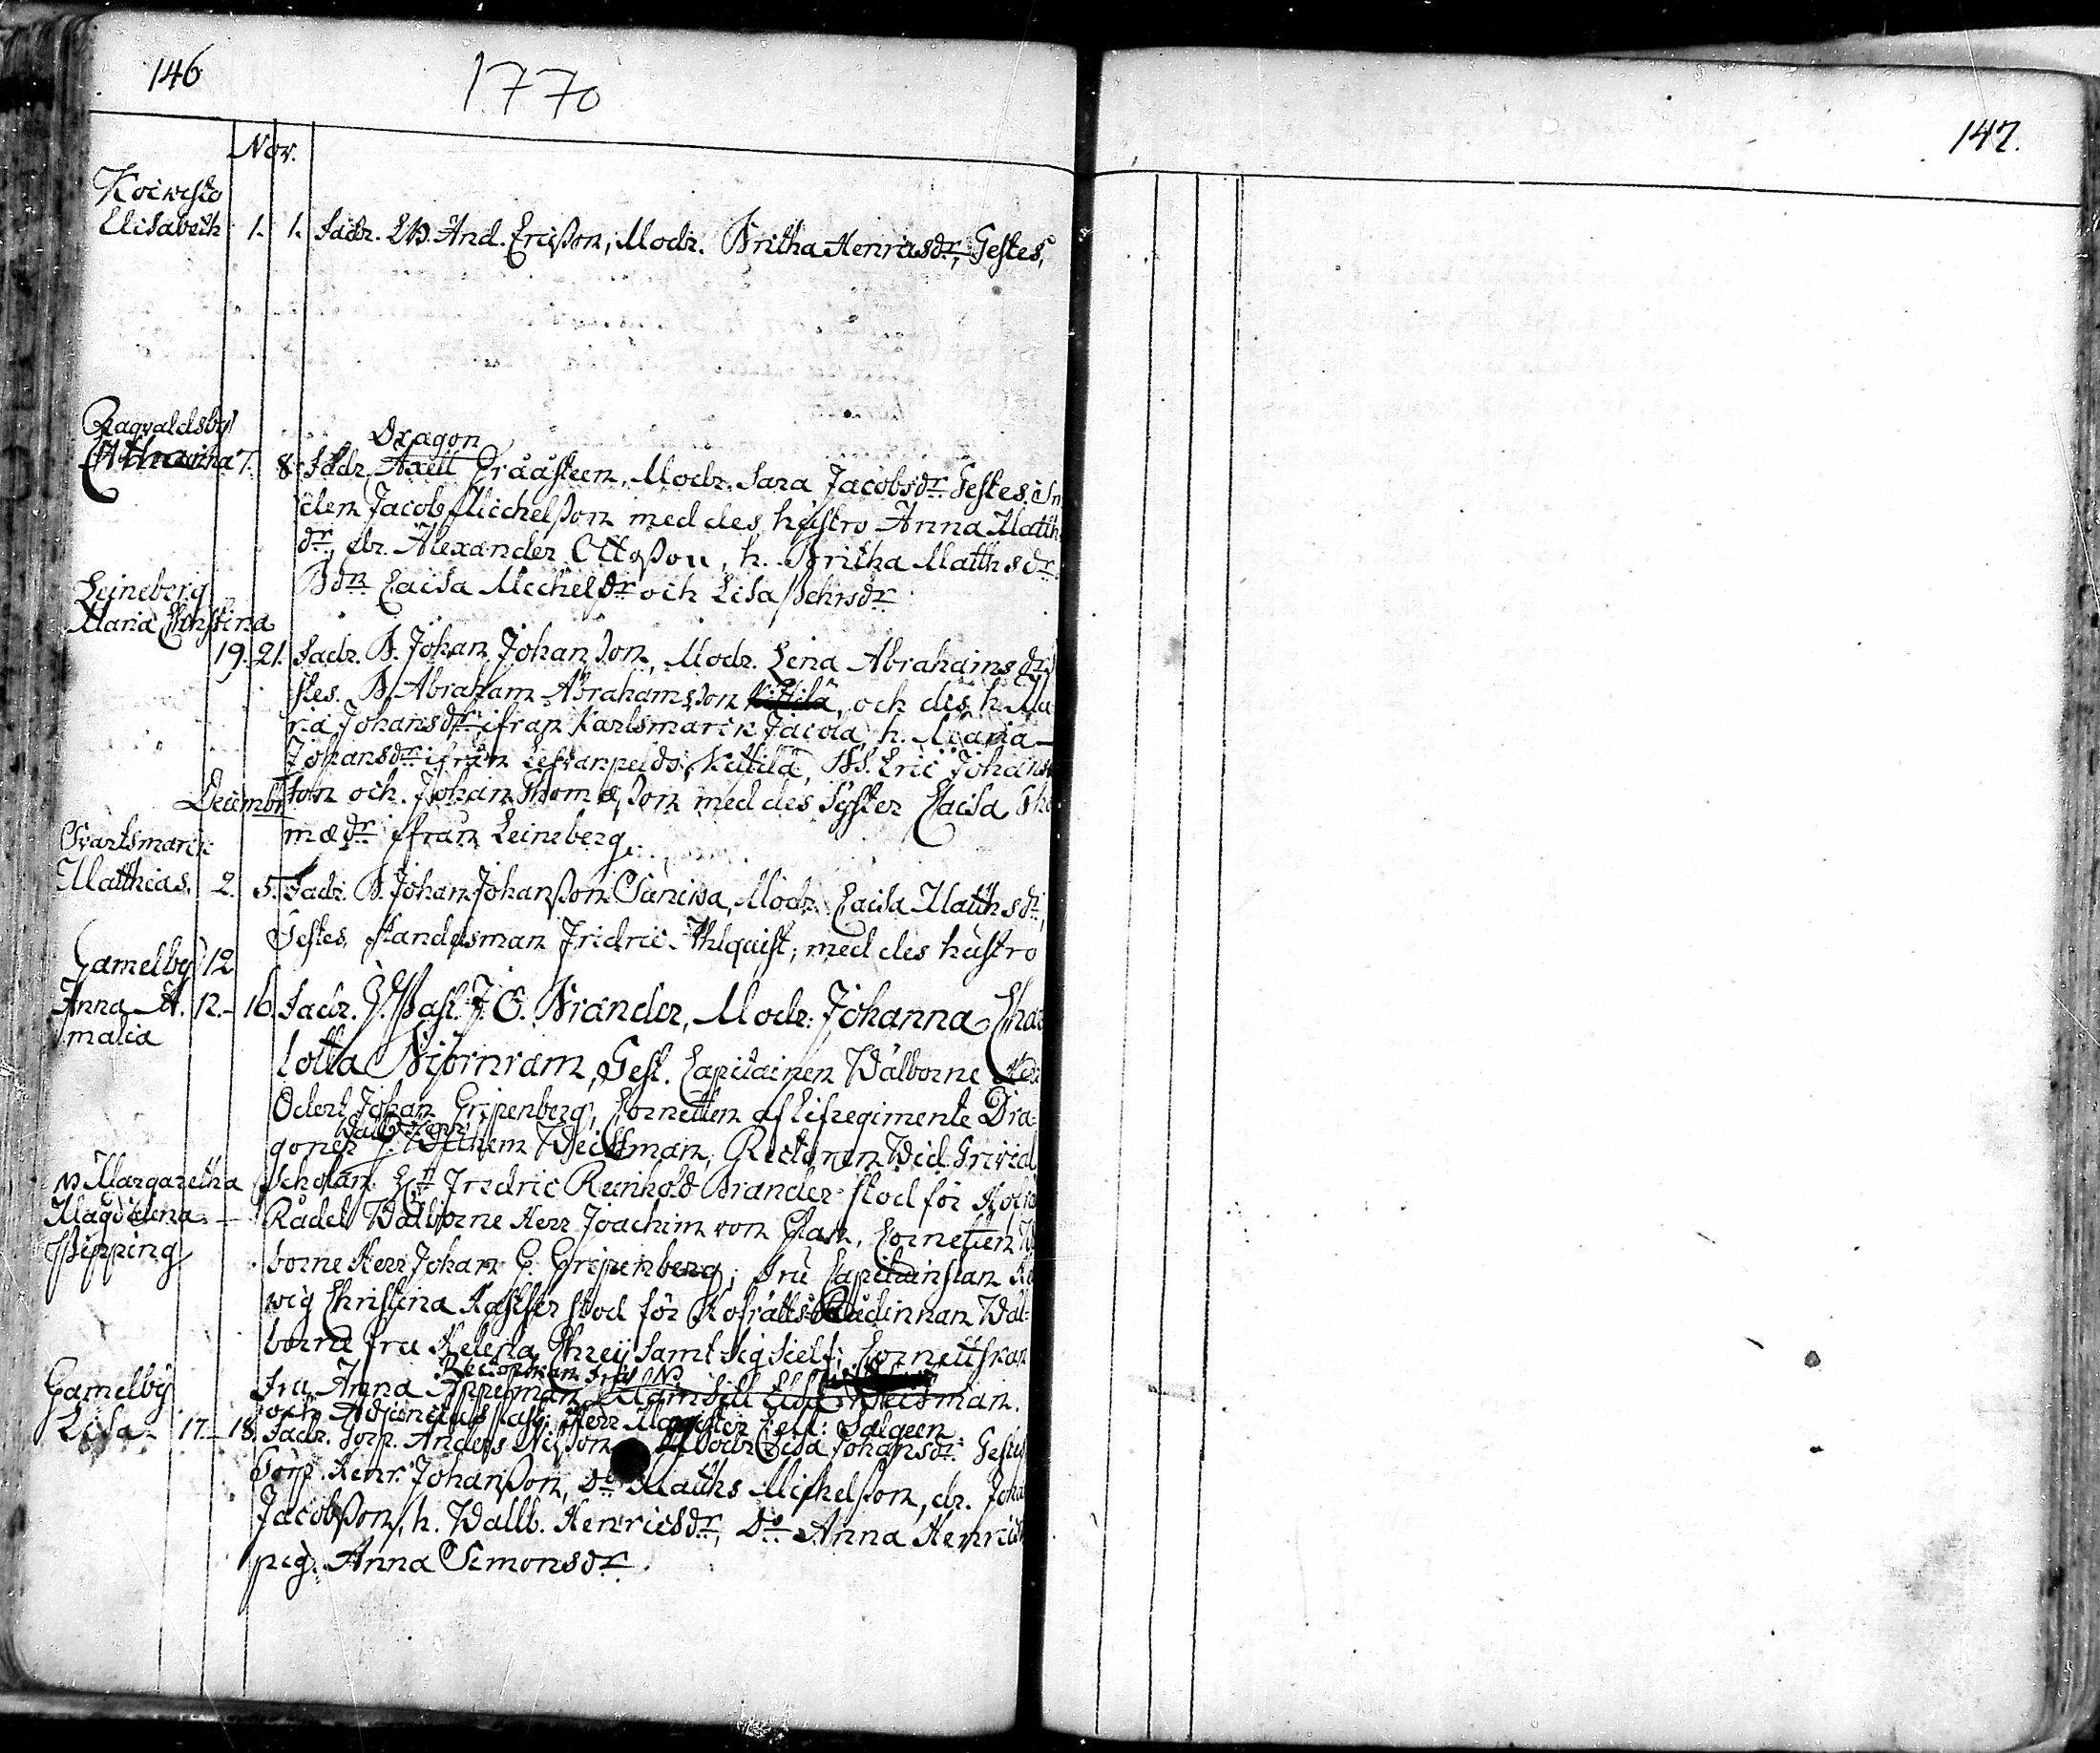 146
1770
147.
Nov.
Koivisto
Elisabeth 1. 1. Fadr. And. Ericßon, Modr. Britha Henricsdr, Testes,
Ragvaldsby
Dragon
Catharina 7. 8. Fadr. Axell Grååsteen, Modr. Sara Jacobsdr Testes.
Jacob Michelßon med des hustro Anna Matth
dr, dr. Alexander Ottoßon, h. Britha Matthsdr
Bdr Caisa Michelsdr och Lisa
Leineberg
Maria Christina
19. 21. Fadr. B. Johan Johanson, Modr. Lena Abrahamsdr
stes. B. Abraham Abrahamsson Kittilä, och des h. Ma
ria Johansdr ifrån Karlsmarck Jacola, h. Maria
Johansdr ifrån Kittilä, BS. Eric Johans
Decembr son och Johan Thomæson med des Syster Caisa Tho
mædr ifrån Leineberg.
Svartsmarck
Matthias. 2. 5. Fadr. B. Johan Johanßon Modr. Caisa Matthsdr,
Testes, Standsman Fridric Ahlquist, med des hustro
Gamelby 12
Anna A. 12. 16. Fadr. V. Past. J. G. Brander, Modr: Johanna Char
malia
lotta Björnram, Test. Capitainen Wälborne
Odert Johan Gripenberg, Cornetten af Lifregimente Dra-
Wälb Herr
goner Wilhem Weidman, Rectoren wid Trivial
N Margaretha Scholan Fredric Reinhold Brander stod för Hofrä
Magdalena Rådet Wälborne Herr Joachim von Glan, Cornetten W
Pipping
borne Herr Johan G. Gripenberg; Fru Capitainskan He
wig Christina stod för Hofrätts Rådinnan Wäl-
borne fru Helena samt sig sielf; Cornettskan
Rectorskan Fru
Fru Anna Weidman.
och Adjunctus Herr Magister Salgeen
Gamelby
Lisa 17. 18. Fadr. Torp. Anders Nilßon Modr Lisa Johansdr. Testes
Torp. Henr. Johanßon, Do Matths Michelßon, dr. Joha
Jacobßon, h. Wallb. Henricsdr, Do Anna Henric
pig. Anna Simonsdr.